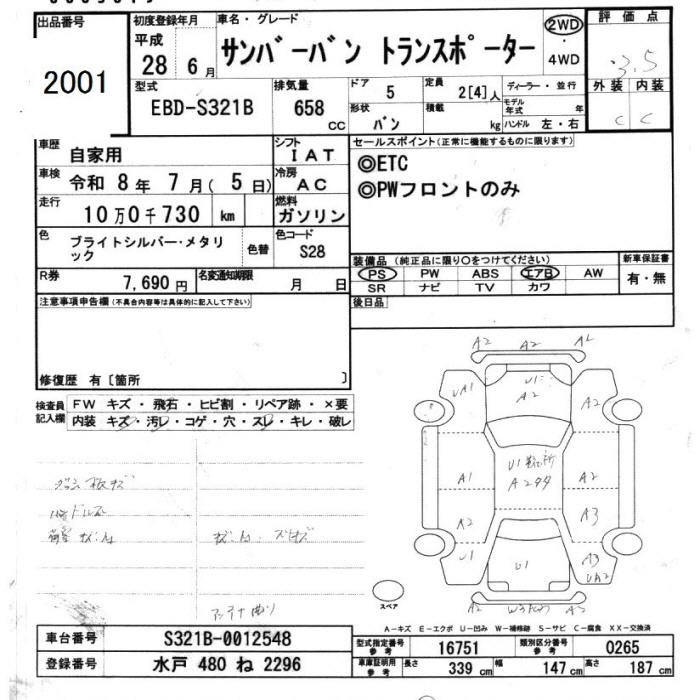 出品番号
2001
初度登録年月
平成
28 6月
車名・グレード
サンバーバン トランスポーター
2WD
・
4WD
評価点
3.5
外装 内装
C C
型式
EBD-S321B
排気量
658
CC
ドア
5
定員
2[4]人
形状
バン
積載
kg
ディーラー・並行
モデル年式 年
ハンドル 左・右
車歴
自家用
シフト
IAT
車検
令和 8年 7月(5日)
冷房
AC
走行
10万0千730 km
燃料
ガソリン
色
ブライトシルバー・メタリ
ック
色替
色コード
S28
R券
7,690円
名変通知期限
月 日
セールスポイント(正常に機能するものに限ります)
◎ETC
◎PWフロントのみ
装備品(純正品に限り○をつけてください)
PS PW ABS エアB AW
SR ナビ TV カワ
新車保証書
有・無
後日品
注意事項申告欄(不具合内容等は具体的に記入して下さい)
修復歴 有〔箇所 〕
検査員
記入欄
FW キズ・飛石・ヒビ割・リペア跡・×要
内装 キズ・汚レ・コゲ・穴・スレ・キレ・破レ
A2 A2
UA1 U1 A2 A2
A1 U1 A2
A2 A3
U1 U1 A3
UA2
A2
スペア
A-キズ E-エクボ U-凹み W-補修跡 S-サビ C-腐食 XX-交換済
車台番号
S321B-0012548
登録番号
水戸 480 ね 2296
型式指定番号
参考
16751
類別区分番号
参考
0265
車庫証明用
参考
長さ 339 cm
幅 147 cm
高さ 187 cm